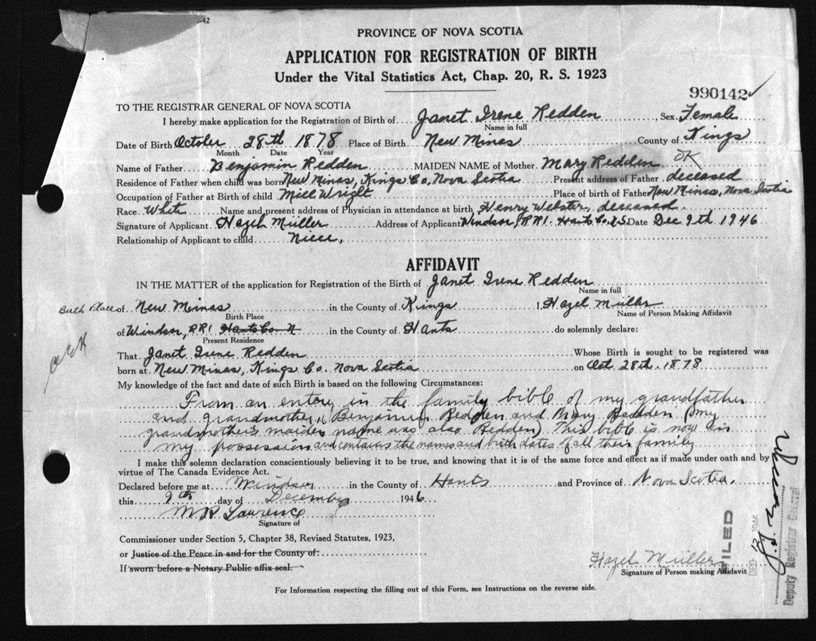 42
PROVINCE OF NOVA SCOTIA
APPLICATION FOR REGISTRATION OF BIRTH
Under the Vital Statistics Act, Chap. 20, R. S. 1923
990142
TO THE REGISTRAR GENERAL OF NOVA SCOTIA
I hereby make application for the Registration of Birth of Janet Irene Redden Sex Female
Name in full
Date of Birth October 28th 1878 Place of Birth New Minas County of Kings
Month Date Year
Name of Father Benjamin Redden MAIDEN NAME of Mother Mary Redden OK
Residence of Father when child was born New Minas, Kings Co, Nova Scotia Present address of Father deceased
Occupation of Father at Birth of child Mill Wright Place of birth of Father New Minas, Nova Scotia
Race White Name and present address of Physician in attendance at birth Henry Webster, deceased
Signature of Applicant Hazel Müller Address of Applicant Windsor, RR1. Hants Co. N.S. Date Dec 9th 1946
Relationship of Applicant to child Niece,
AFFIDAVIT
IN THE MATTER of the application for Registration of the Birth of Janet Irene Redden
Name in full
Birth Place of New Minas in the County of Kings I, Hazel Müller
Birth Place Name of Person Making Affidavit
of Windsor, RR1 Hants Co N in the County of Hants do solemnly declare:
Present Residence
That Janet Irene Redden Whose Birth is sought to be registered was
born at New Minas, Kings Co. Nova Scotia on Oct 28th. 1878
My knowledge of the fact and date of such Birth is based on the following Circumstances:
From an entry in the family bible of my grandfather
and grandmother, Benjamin Redden and Mary Redden (my
grandmother's maiden name was also Redden) This bible is now in
my possession and contains the names and birth dates of all their family
I make this solemn declaration conscientiously believing it to be true, and knowing that it is of the same force and effect as if made under oath and by
virtue of The Canada Evidence Act.
Declared before me at Windsor in the County of Hants and Province of Nova Scotia.
this 9th day of December 1946.
M R Lawrence
Signature of
Commissioner under Section 5, Chapter 38, Revised Statutes, 1923,
or Justice of the Peace in and for the County of:
If sworn before a Notary Public affix seal.
Hazel Müller
Signature of Person making Affidavit
For Information respecting the filling out of this Form, see Instructions on the reverse side.
FILED
DEC 1946
Deputy Registrar General